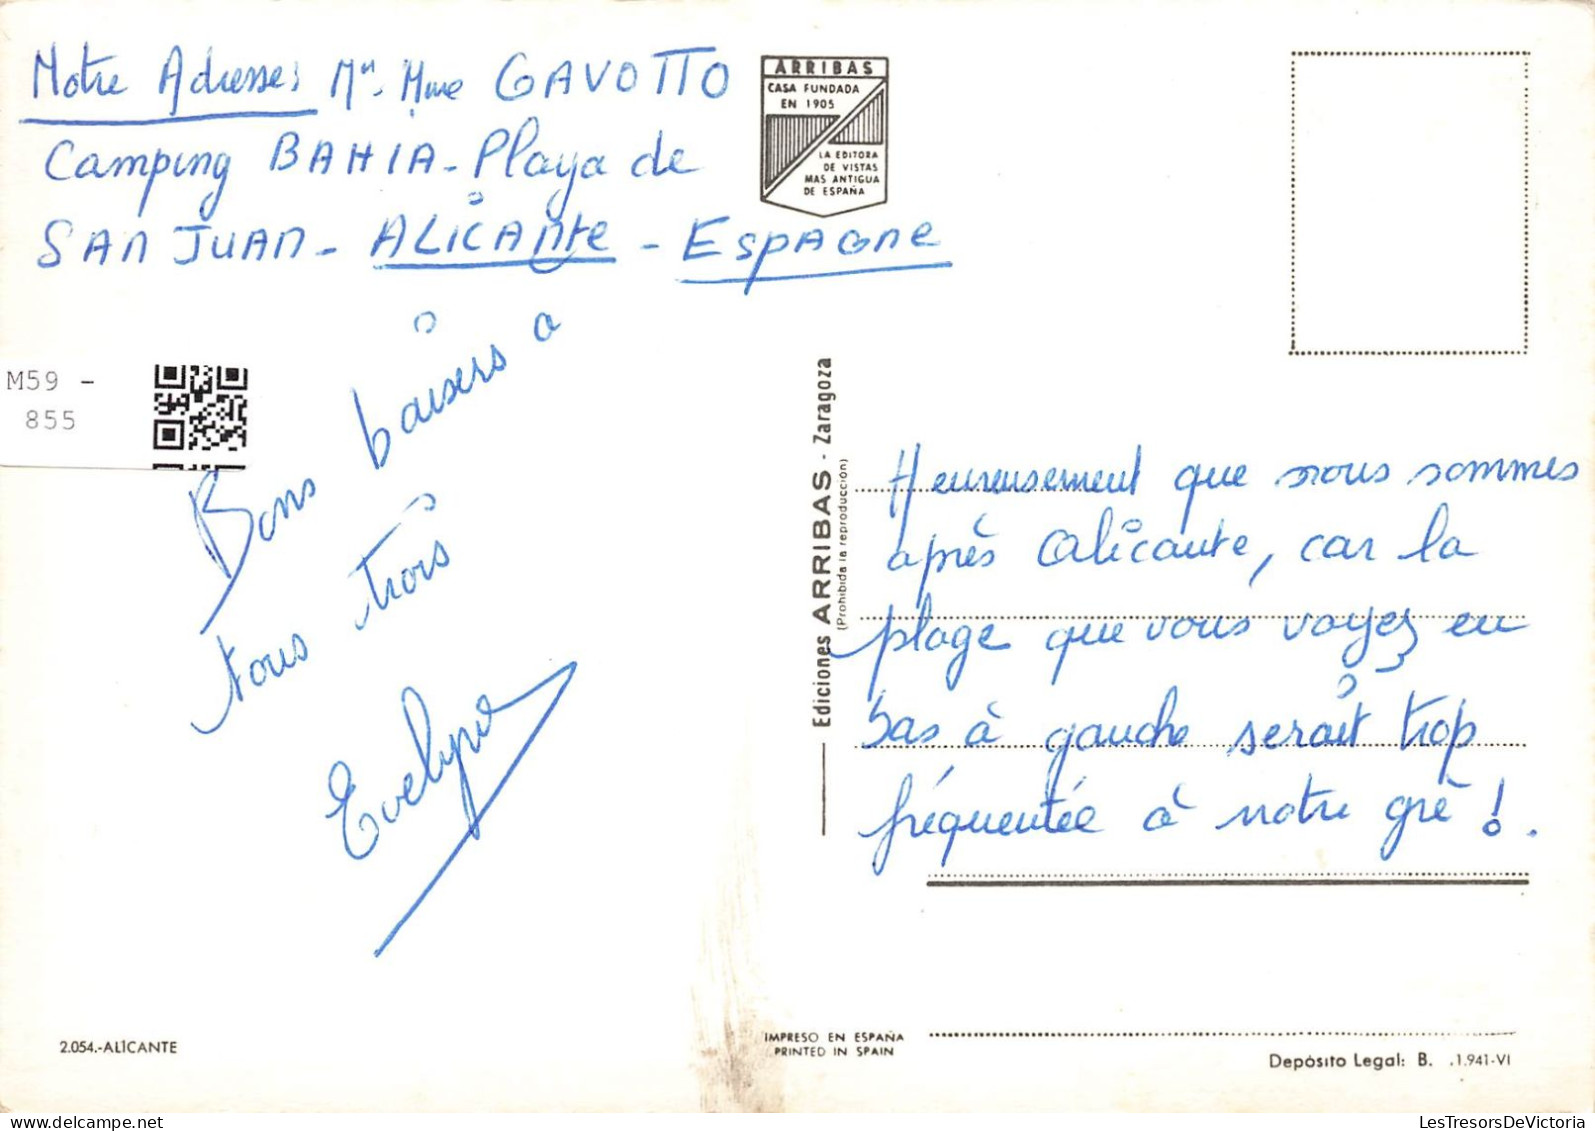 Notre Adresse: Mr. Mme GAVOTTO
Camping BAHIA - Playa de
SAN JUAN - ALICANTE - ESPAGNE
Bons baisers à
tous trois
Evelyne
M59 -
855
2.054.-ALICANTE
ARRIBAS
CASA FUNDADA
EN 1905
LA EDITORA
DE VISTAS
MAS ANTIGUA
DE ESPAÑA
Ediciones ARRIBAS - Zaragoza
(Prohibida la reproducción)
Heureusement que nous sommes
après Alicante, car la
plage que vous voyez en
bas à gauche serait trop
fréquentée à notre gré !.
IMPRESO EN ESPAÑA
PRINTED IN SPAIN
Depósito Legal: B. .1.941-VI
LesTresorsDeVictoria